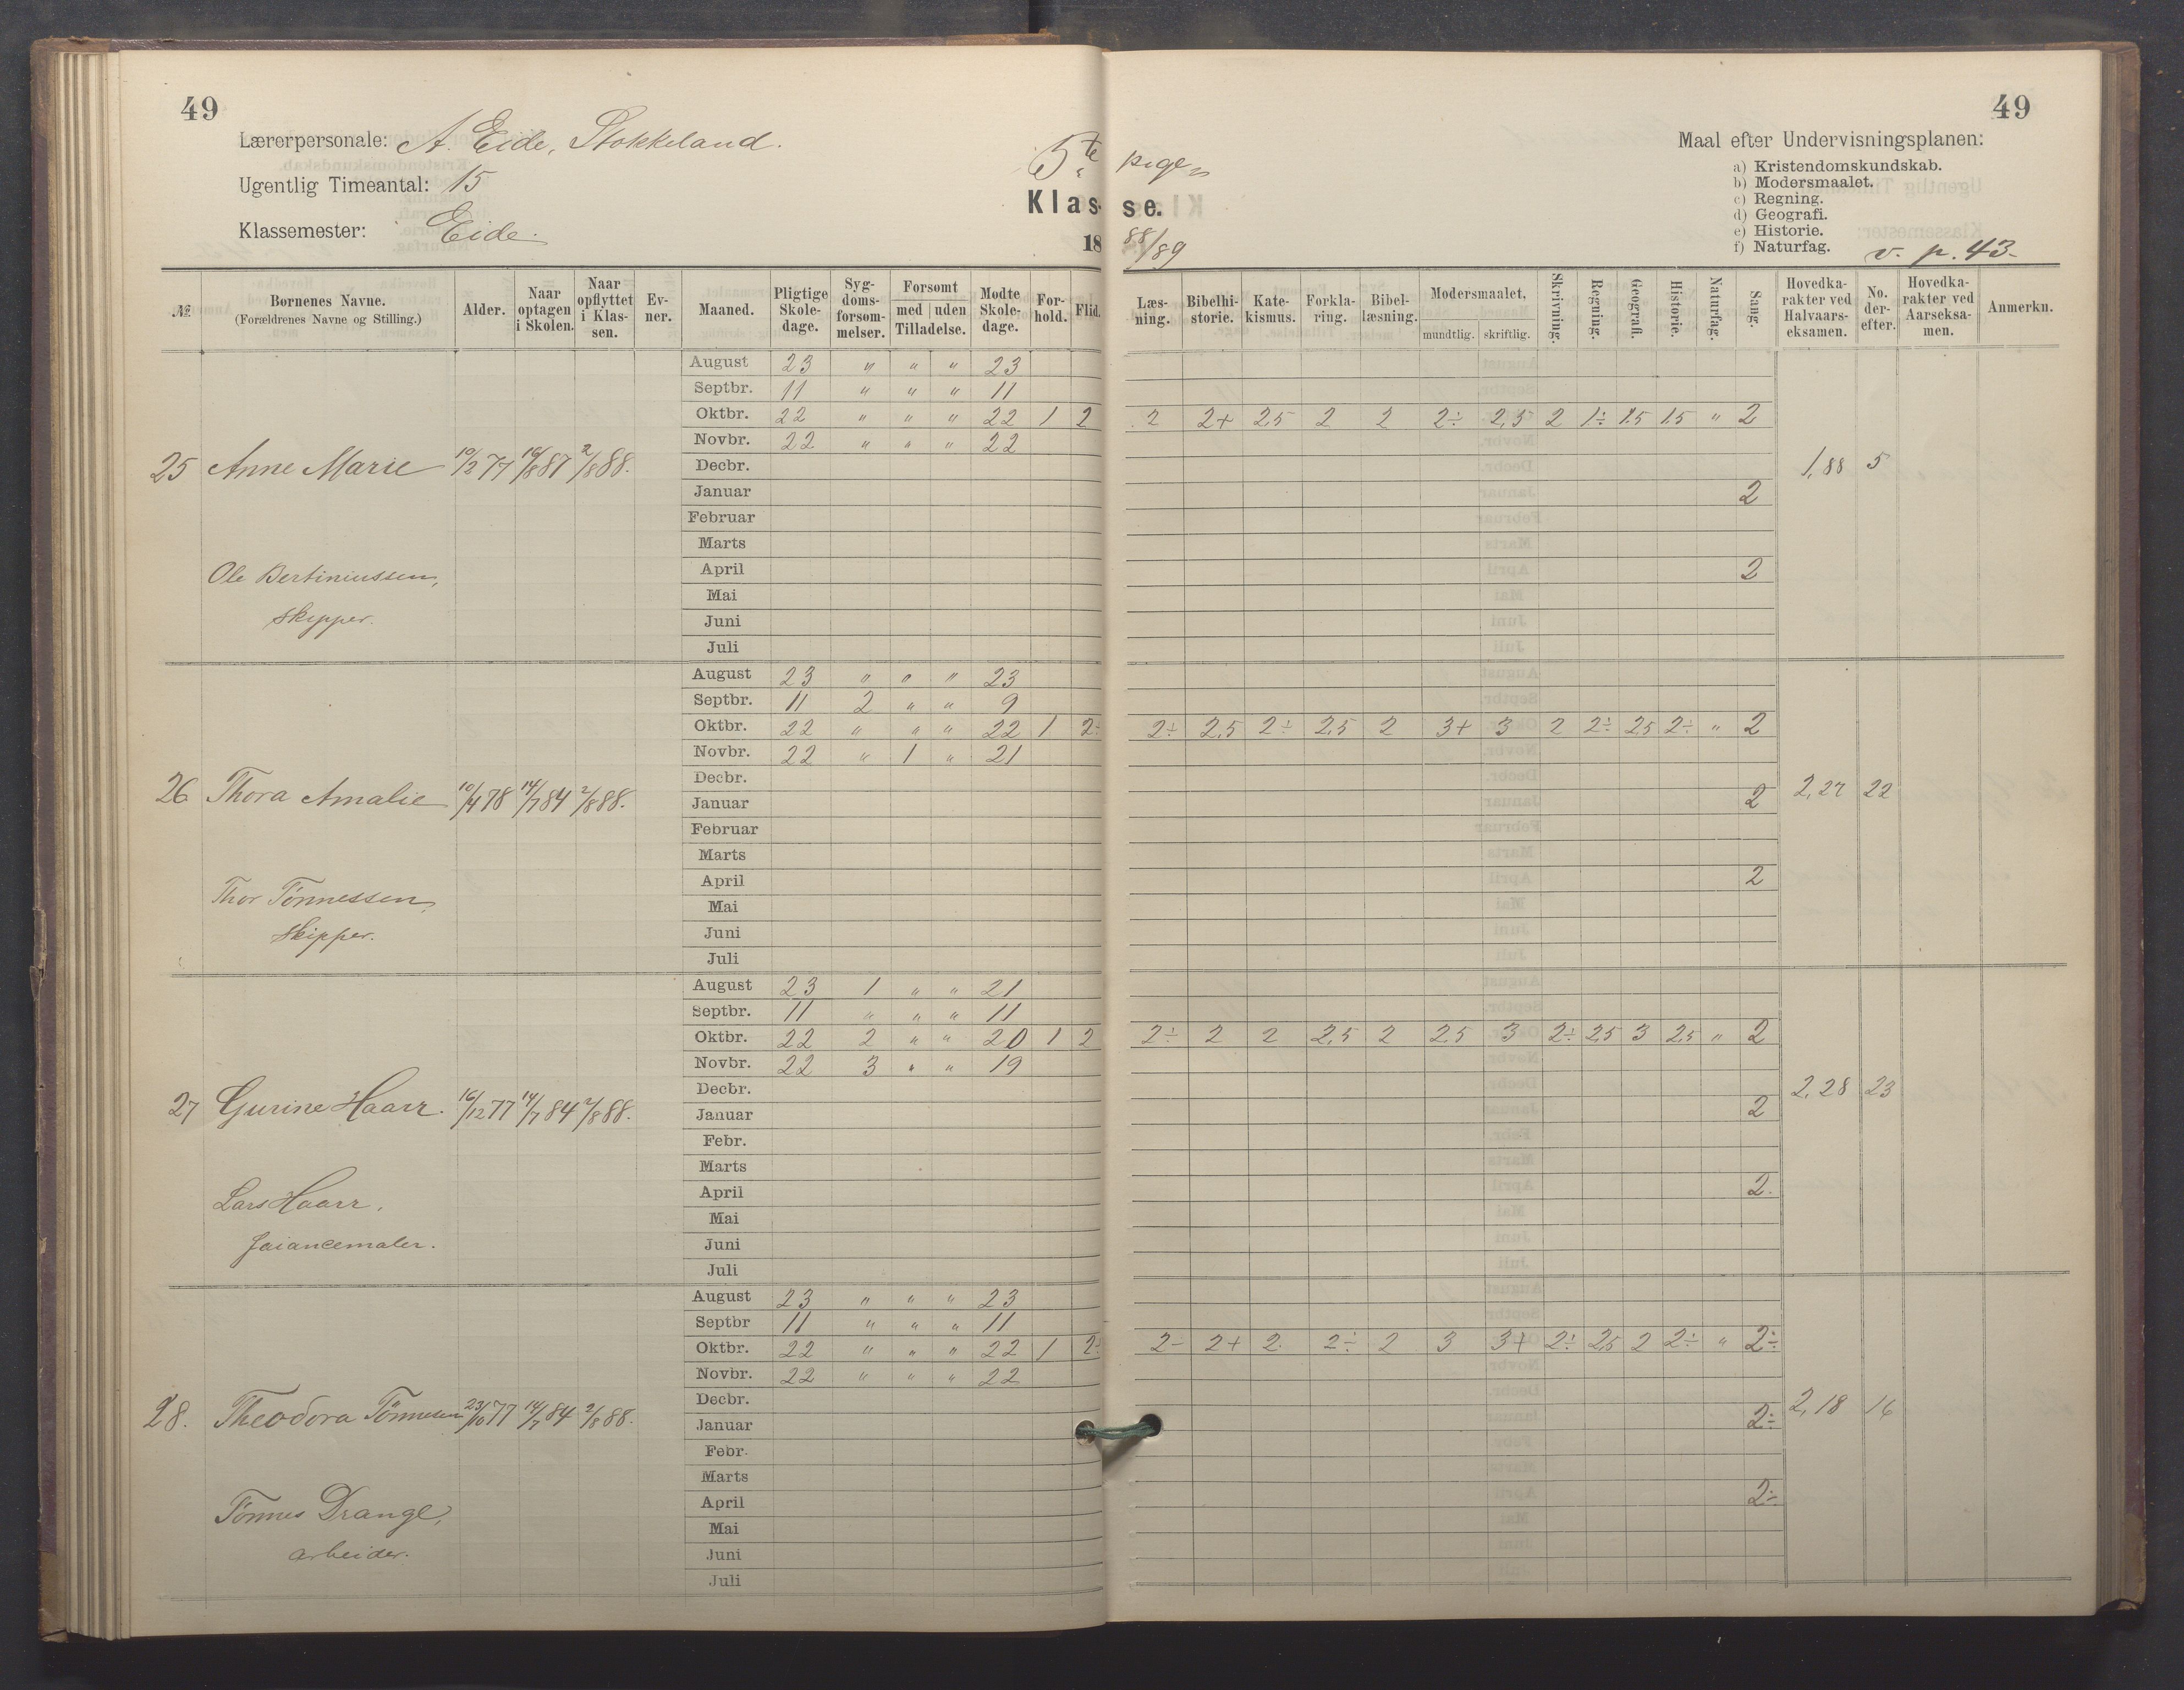 49
Lærerpersonale: A. Eide, Stokkeland.
Ugentlig Timeantal: 15
Klassemester: Eide.
5te pige
Klas- se.
18 88/89
49
Maal efter Undervisningsplanen:
a) Kristendomskundskab.
b) Modersmaalet.
c) Regning.
d) Geografi.
e) Historie.
f) Naturfag. v. p. 43.
№ Børnenes Navne. (Forældrenes Navne og Stilling.) Alder. Naar optagen i Skolen. Naar opflyttet i Klassen. Evner. Maaned. Pligtige Skoledage. Sygdomsforsømmelser. Forsømt med uden Tilladelse. Mødte Skoledage. Forhold. Flid. Læsning. Bibelhistorie. Katekismus. Forklaring. Bibellæsning. Modersmaalet, mundtlig. skriftlig. Skrivning. Regning. Geografi. Historie. Naturfag. Sang. Hovedkarakter ved Halvaarseksamen. No. derefter. Hovedkarakter ved Aarseksamen. Anmerkn.
August 23 " " " 23
Septbr. 11 " " " 11
Oktbr. 22 " " " 22 1 2 2 2+ 2,5 2 2 2÷ 2,5 2 1÷ 1.5 1.5 " 2
Novbr. 22 " " " 22
25 Anne Marie 10/2 77 16/8 87 2/8 88. Decbr. 1,88 5
Januar 2
Februar
Marts
Ole Bertiniussen, April 2
Mai
skipper. Juni
Juli
August 23 " " " 23
Septbr. 11 2 " " 9
Oktbr. 22 " " " 22 1 2÷ 2÷ 2,5 2÷ 2,5 2 3+ 3 2 2÷ 2,5 2÷ " 2
Novbr. 22 " 1 " 21
Decbr.
26 Thora Amalie 10/4 78 14/7 84 2/8 88. Januar 2 2,27 22
Februar
Marts
Thor Tönnessen, April 2
Mai
skipper. Juni
Juli
August 23 1 " " 21
Septbr. 11 " " " 11
Oktbr. 22 2 " " 20 1 2 2÷ 2 2 2,5 2 2,5 3 2÷ 2,5 3 2,5 " 2
Novbr. 22 3 " " 19
Decbr.
27 Gurine Haarr. 16/12 77 14/7 84 2/8 88. Januar 2 2,28 23
Febr.
Marts
Lars Haarr, April 2.
Mai
faiancemaler. Juni
Juli
August 23 " " " 23
Septbr 11 " " " 11
Oktbr. 22 " " " 22 1 2÷ 2- 2+ 2. 2÷ 2 3 3+ 2÷ 2,5 2 2÷ " 2÷
Novbr. 22 " " " 22
Decbr.
28. Theodora Tönnesen 23/10 77 14/7 84 2/8 88. Januar 2÷ 2,18 16
Febr.
Marts
Tönnes Drange, April 2÷
Mai
arbeider. Juni
Juli